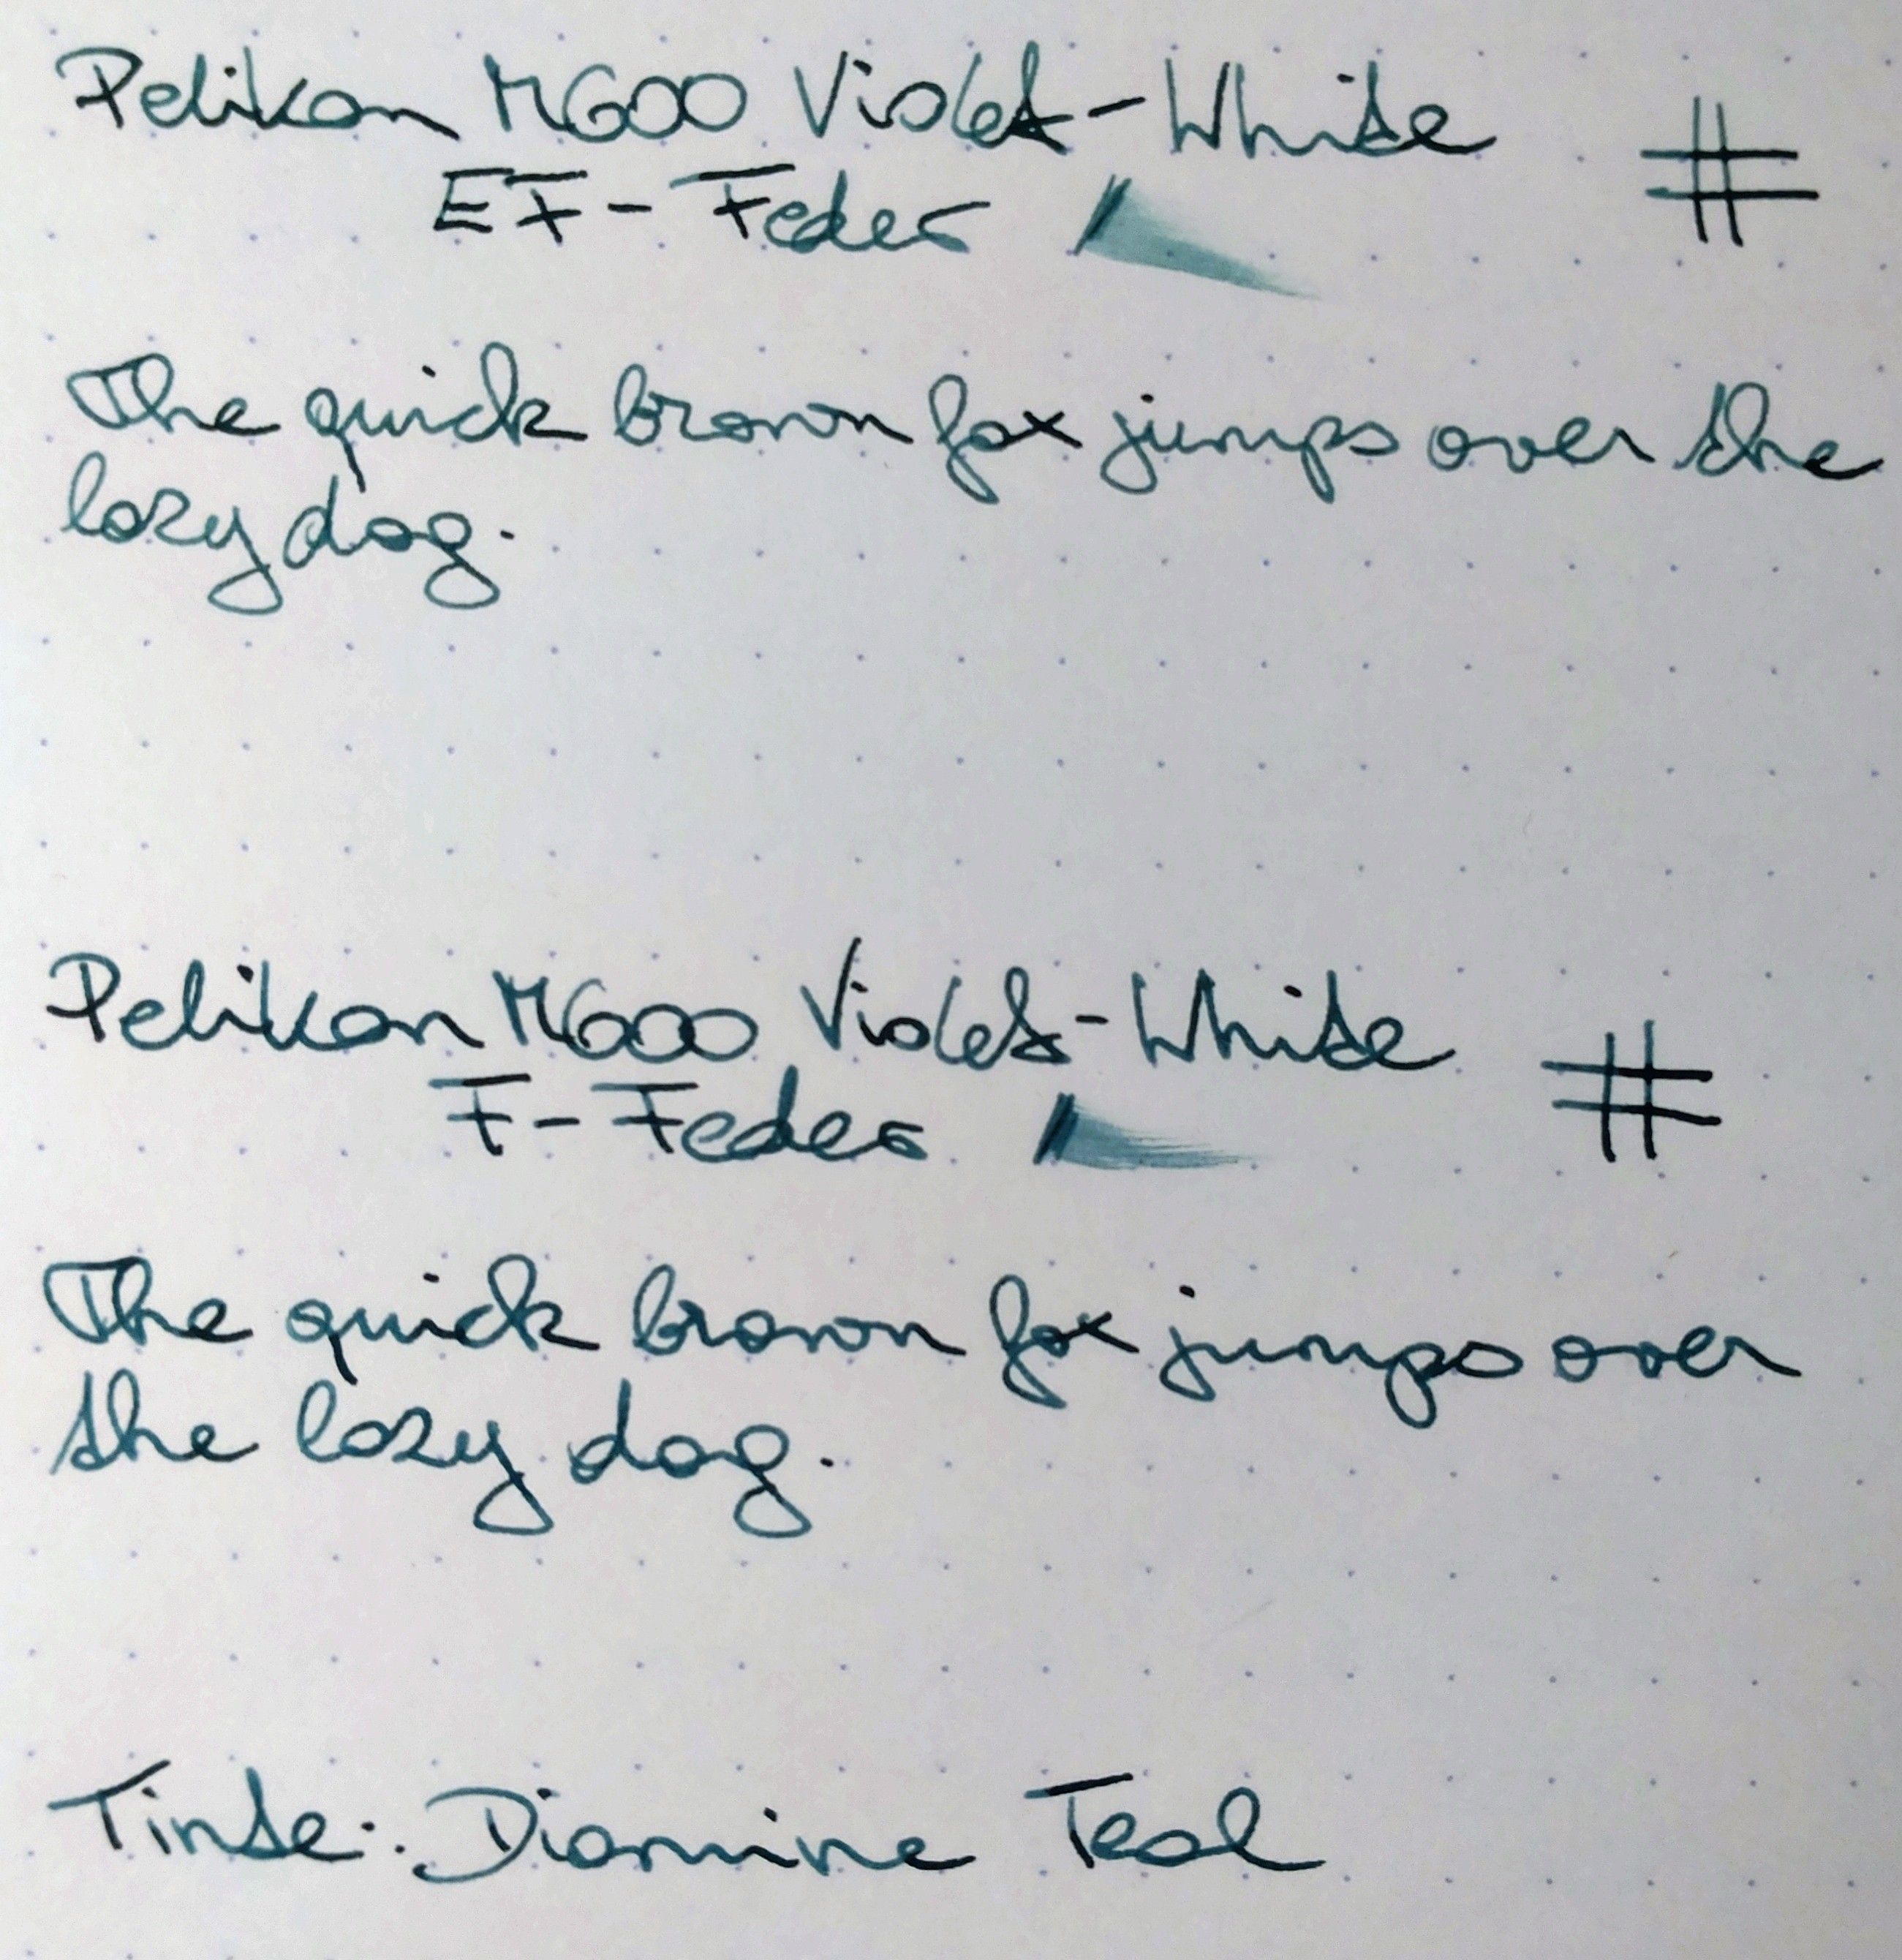 Pelikan M600 Violet-White #
EF-Feder
The quick brown fox jumps over the
lazy dog.
Pelikan M600 Violet-White #
F-Feder
The quick brown fox jumps over
the lazy dog.
Tinte: Diamine Teal